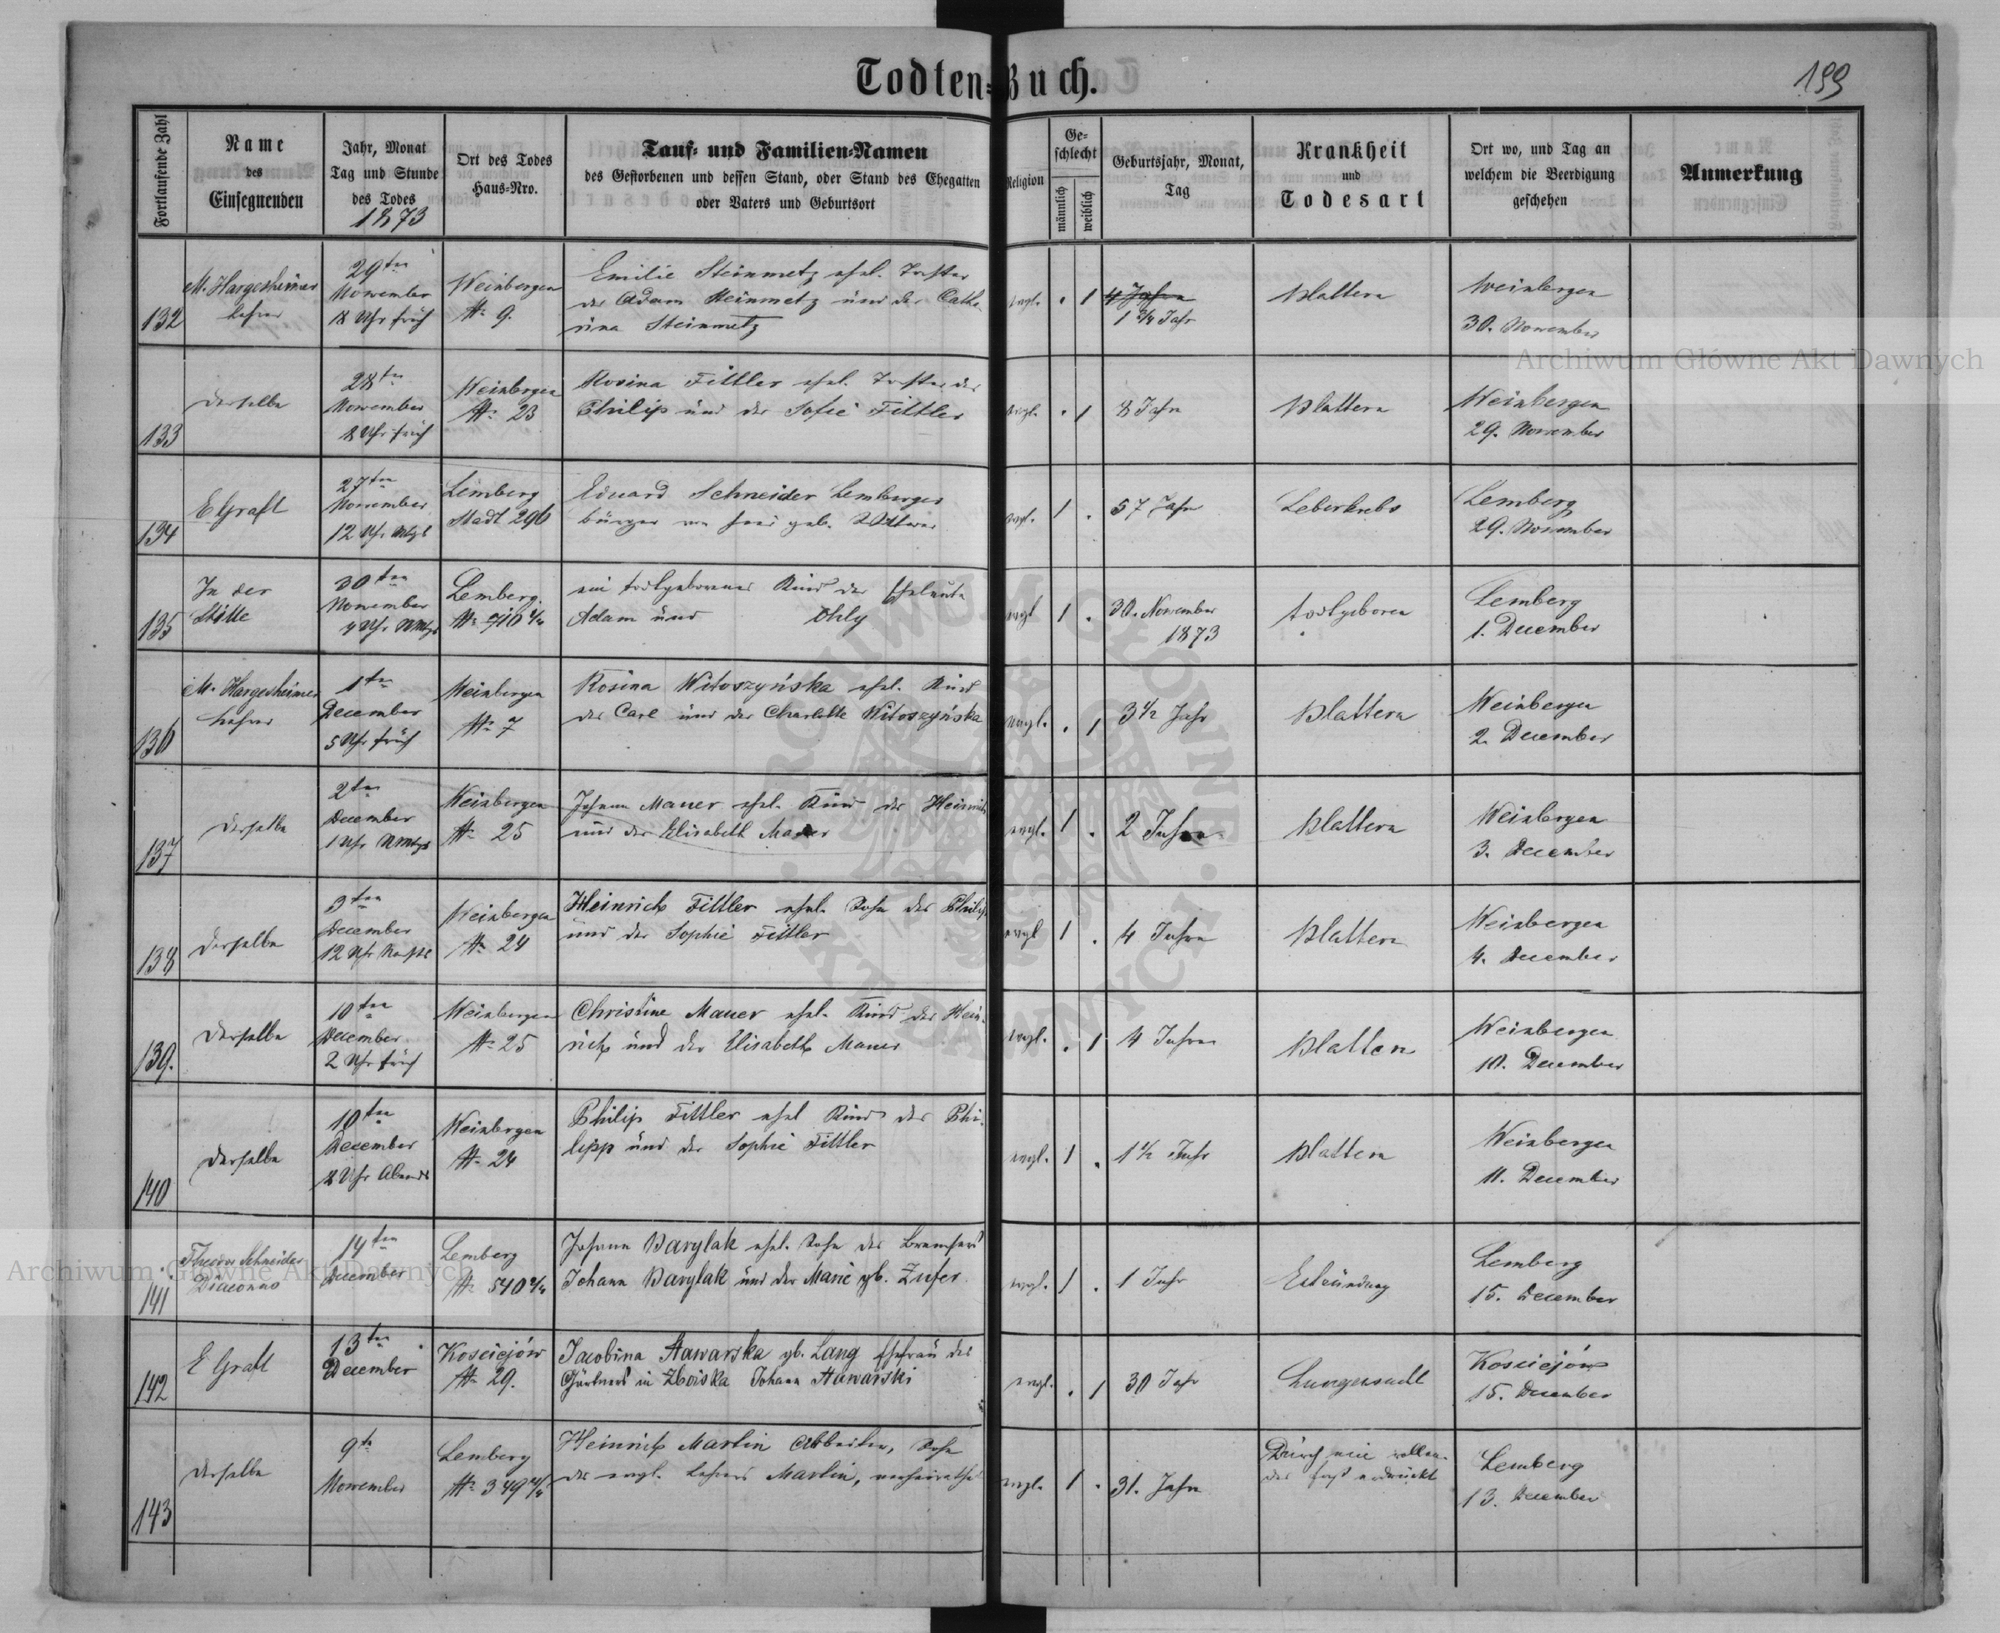 Todten-Buch.
199
Fortlaufende Zahl
Name
des
Einsegnenden
Jahr, Monat
Tag und Stunde
des Todes
1873
Ort des Todes
Haus-Nro.
Tauf- und Familien-Namen
des Gestorbenen und dessen Stand, oder Stand des Ehegatten
oder Vaters und Geburtsort
Religion
Ge-
schlecht
männlich
weiblich
Geburtsjahr, Monat,
Tag
Krankheit
und
Todesart
Ort wo, und Tag an
welchem die Beerdigung
geschehen
Anmerkung
132
M. Hargesheimer
Lehrer
29ten
November
8 Uhr früh
Weinbergen
N. 9.
Emilie Steinmetz ehel. Tochter
des Adam Steinmetz und der Catha-
rina Steinmetz
evgl.
1
4 Jahre
1 3/4 Jahr
Blattern
Weinbergen
30. November
133
Derselbe
28ten
November
8 Uhr früh
Weinbergen
N. 23
Rosina Fittler ehel. Tochter des
Philip und der Sofie Fittler
evgl.
1
8 Jahr
Blattern
Weinbergen
29. November
134
E Graft
27ten
November
12 Uhr Mtgs
Lemberg
Stadt 296
Eduard Schneider Lemberger
bürger geb. Wittwer
evgl.
1
57 Jahr
Leberkrebs
Lemberg
29. November
135
In der
Stille
30ten
November
4 Uhr NMtgs
Lemberg.
N. 910 2/4
ein todtgeborenes Kind der Eheleute
Adam und Ohly
evgl
1
30. November
1873
todtgeboren
Lemberg
1. December
136
M. Hargesheimer
Lehrer
1ten
December
5 Uhr früh
Weinbergen
N. 7
Rosina Witoszyńska ehel. Kind
des Carl und der Charlotte Witoszyńska
evgl.
1
3 1/2 Jahr
Blattern
Weinbergen
2. December
137
Derselbe
2ten
December
1 Uhr NMtgs
Weinbergen
N. 25
Johann Mauer ehel. Kind des Heinrich
und der Elisabeth Mauer
evgl.
1
2 Jahre
Blattern
Weinbergen
3. December
138
Derselbe
3ten
December
12 Uhr Nachts
Weinbergen
N. 24
Heinrich Fittler ehel. Sohn des Philip
und der Sophie Fittler
evgl
1
4 Jahre
Blattern
Weinbergen
4. December
139.
Derselbe
10ten
December
2 Uhr früh
Weinbergen
N. 25
Christine Mauer ehel. Kind des Hein-
rich und der Elisabeth Mauer
evgl.
1
4 Jahre
Blattern
Weinbergen
10. December
140
Derselbe
10ten
December
8 Uhr Abends
Weinbergen
N. 24
Philip Fittler ehel Kind des Phi-
lipp und der Sophie Fittler
evgl.
1
1 1/2 Jahr
Blattern
Weinbergen
11. December
141
Theodor Schneider
Diaconus
14ten
December
Lemberg
N. 540 2/4
Johann Barylak ehel. Sohn des
Johann Barylak und der Marie gb. Zufer
evgl.
1
1 Jahr
Entzündung
Lemberg
15. December
142
E Graft
13ten
December
Kosciejów
N. 29.
Jacobina Stawarska gb. Lang Ehefrau des
Gärtners in Zboiska Johann Stawarski
evgl.
1
30 Jahr
Lungensucht
Kosciejów
15. December
143
Derselbe
9te
November
Lemberg
N. 349 4/4
Heinrich Martin Arbeiter, Sohn
des evgl. Lehrers Martin, verheirathet
evgl.
1
31. Jahr
Durch eine rollen-
des Faß erdrückt
Lemberg
13. December
Archiwum Główne Akt Dawnych
Archiwum Główne Akt Dawnych
ARCHIWUM GŁÓWNE AKT DAWNYCH